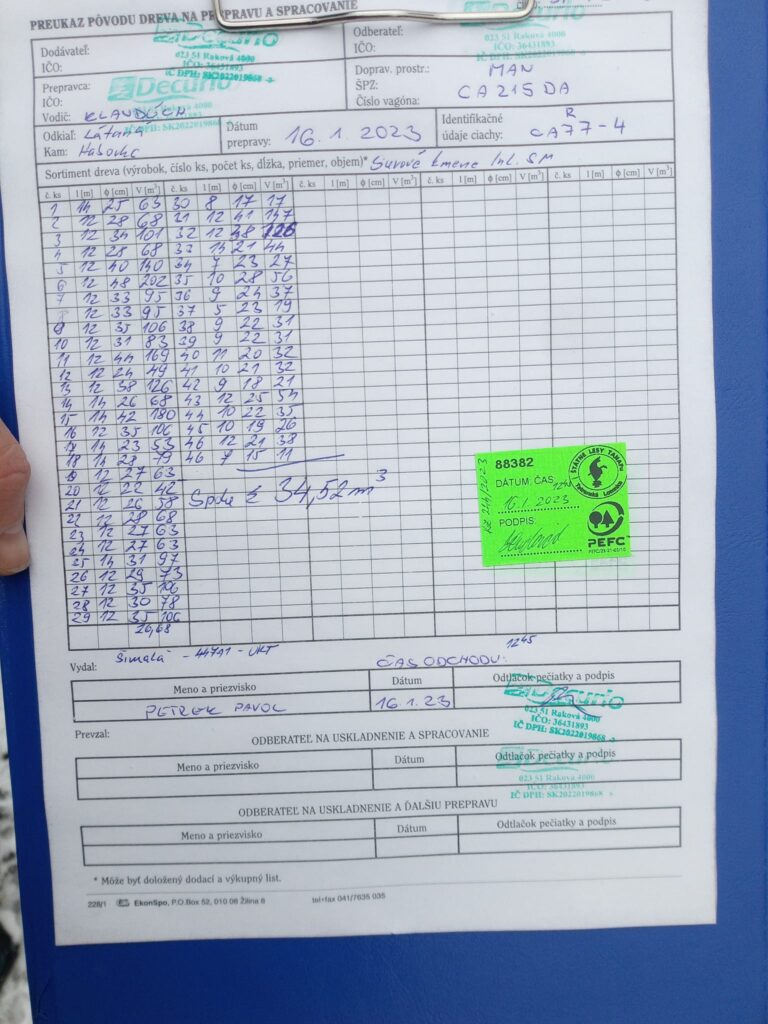 PREUKAZ PÔVODU DREVA NA PREPRAVU A SPRACOVANIE
Dodávateľ:
IČO:
Decurio
023 51 Raková 4000
IČO: 36431893
IČ DPH: SK2022019868
Odberateľ:
IČO:
023 51 Raková 4000
IČO: 36431893
IČ DPH: SK2022019868
Prepravca:
IČO:
Vodič: KLAVDÚCH
Decurio
023 51 Raková 4000
IČ DPH: SK2022019868
Doprav. prostr.: MAN
ŠPZ: CA215DA
Číslo vagóna:
Odkiaľ: Látaná
Kam:
Dátum prepravy: 16.1.2023
Identifikačné údaje ciachy: R CA77-4
Sortiment dreva (výrobok, číslo ks, počet ks, dĺžka, priemer, objem)* Surové kmene Ihl. SM
č. ks l [m] ϕ [cm] V [m³] č. ks l [m] ϕ [cm] V [m³] č. ks l [m] ϕ [cm] V [m³] č. ks l [m] ϕ [cm] V [m³] č. ks l [m] ϕ [cm] V [m³]
1 14 25 63 30 8 17 17
2 12 28 68 31 12 41 147
3 12 34 101 32 12 38 126
4 12 28 68 33 14 21 44
5 12 40 140 34 7 23 27
6 12 48 202 35 10 28 56
7 12 33 95 36 9 24 37
8 12 33 95 37 5 23 19
9 12 35 106 38 9 22 31
10 12 31 83 39 9 22 31
11 12 44 169 40 11 20 32
12 12 24 49 41 10 21 32
13 12 38 126 42 9 18 21
14 14 26 68 43 12 25 54
15 14 42 180 44 10 22 35
16 12 35 106 45 10 19 26
17 14 23 53 46 12 21 38
18 14 28 79 46 7 15 11
12 27 63
20 12 22 42
21 12 26 58
22 12 28 68
23 12 27 63
24 12 27 63
25 14 31 97
26 12 29 73
27 12 35 106
28 12 30 78
29 12 35 106
26,68
Spolu £ 34,52 m³
88382
DÁTUM, ČAS 12⁴⁵
16.1.2023
PODPIS
ŠTÁTNE LESY TANAPU
Tatranská Lomnica
PEFC
Šimalá - 44741 - UKT
12⁴⁵
Vydal:
ČAS ODCHODU:
Meno a priezvisko Dátum Odtlačok pečiatky a podpis
PETREK PAVOL 16.1.23
Decurio
023 51 Raková 4000
IČO: 36431893
IČ DPH: SK2022019868
Prevzal:
ODBERATEĽ NA USKLADNENIE A SPRACOVANIE
Meno a priezvisko Dátum Odtlačok pečiatky a podpis
Decurio
023 51 Raková 4000
IČO: 36431893
IČ DPH: SK2022019868
ODBERATEĽ NA USKLADNENIE A ĎALŠIU PREPRAVU
Meno a priezvisko Dátum Odtlačok pečiatky a podpis
* Môže byť doložený dodací a výkupný list.
228/1 Ekonšipo, P.O.Box 52, 010 08 Žilina 8 tel+fax 041/7635 035